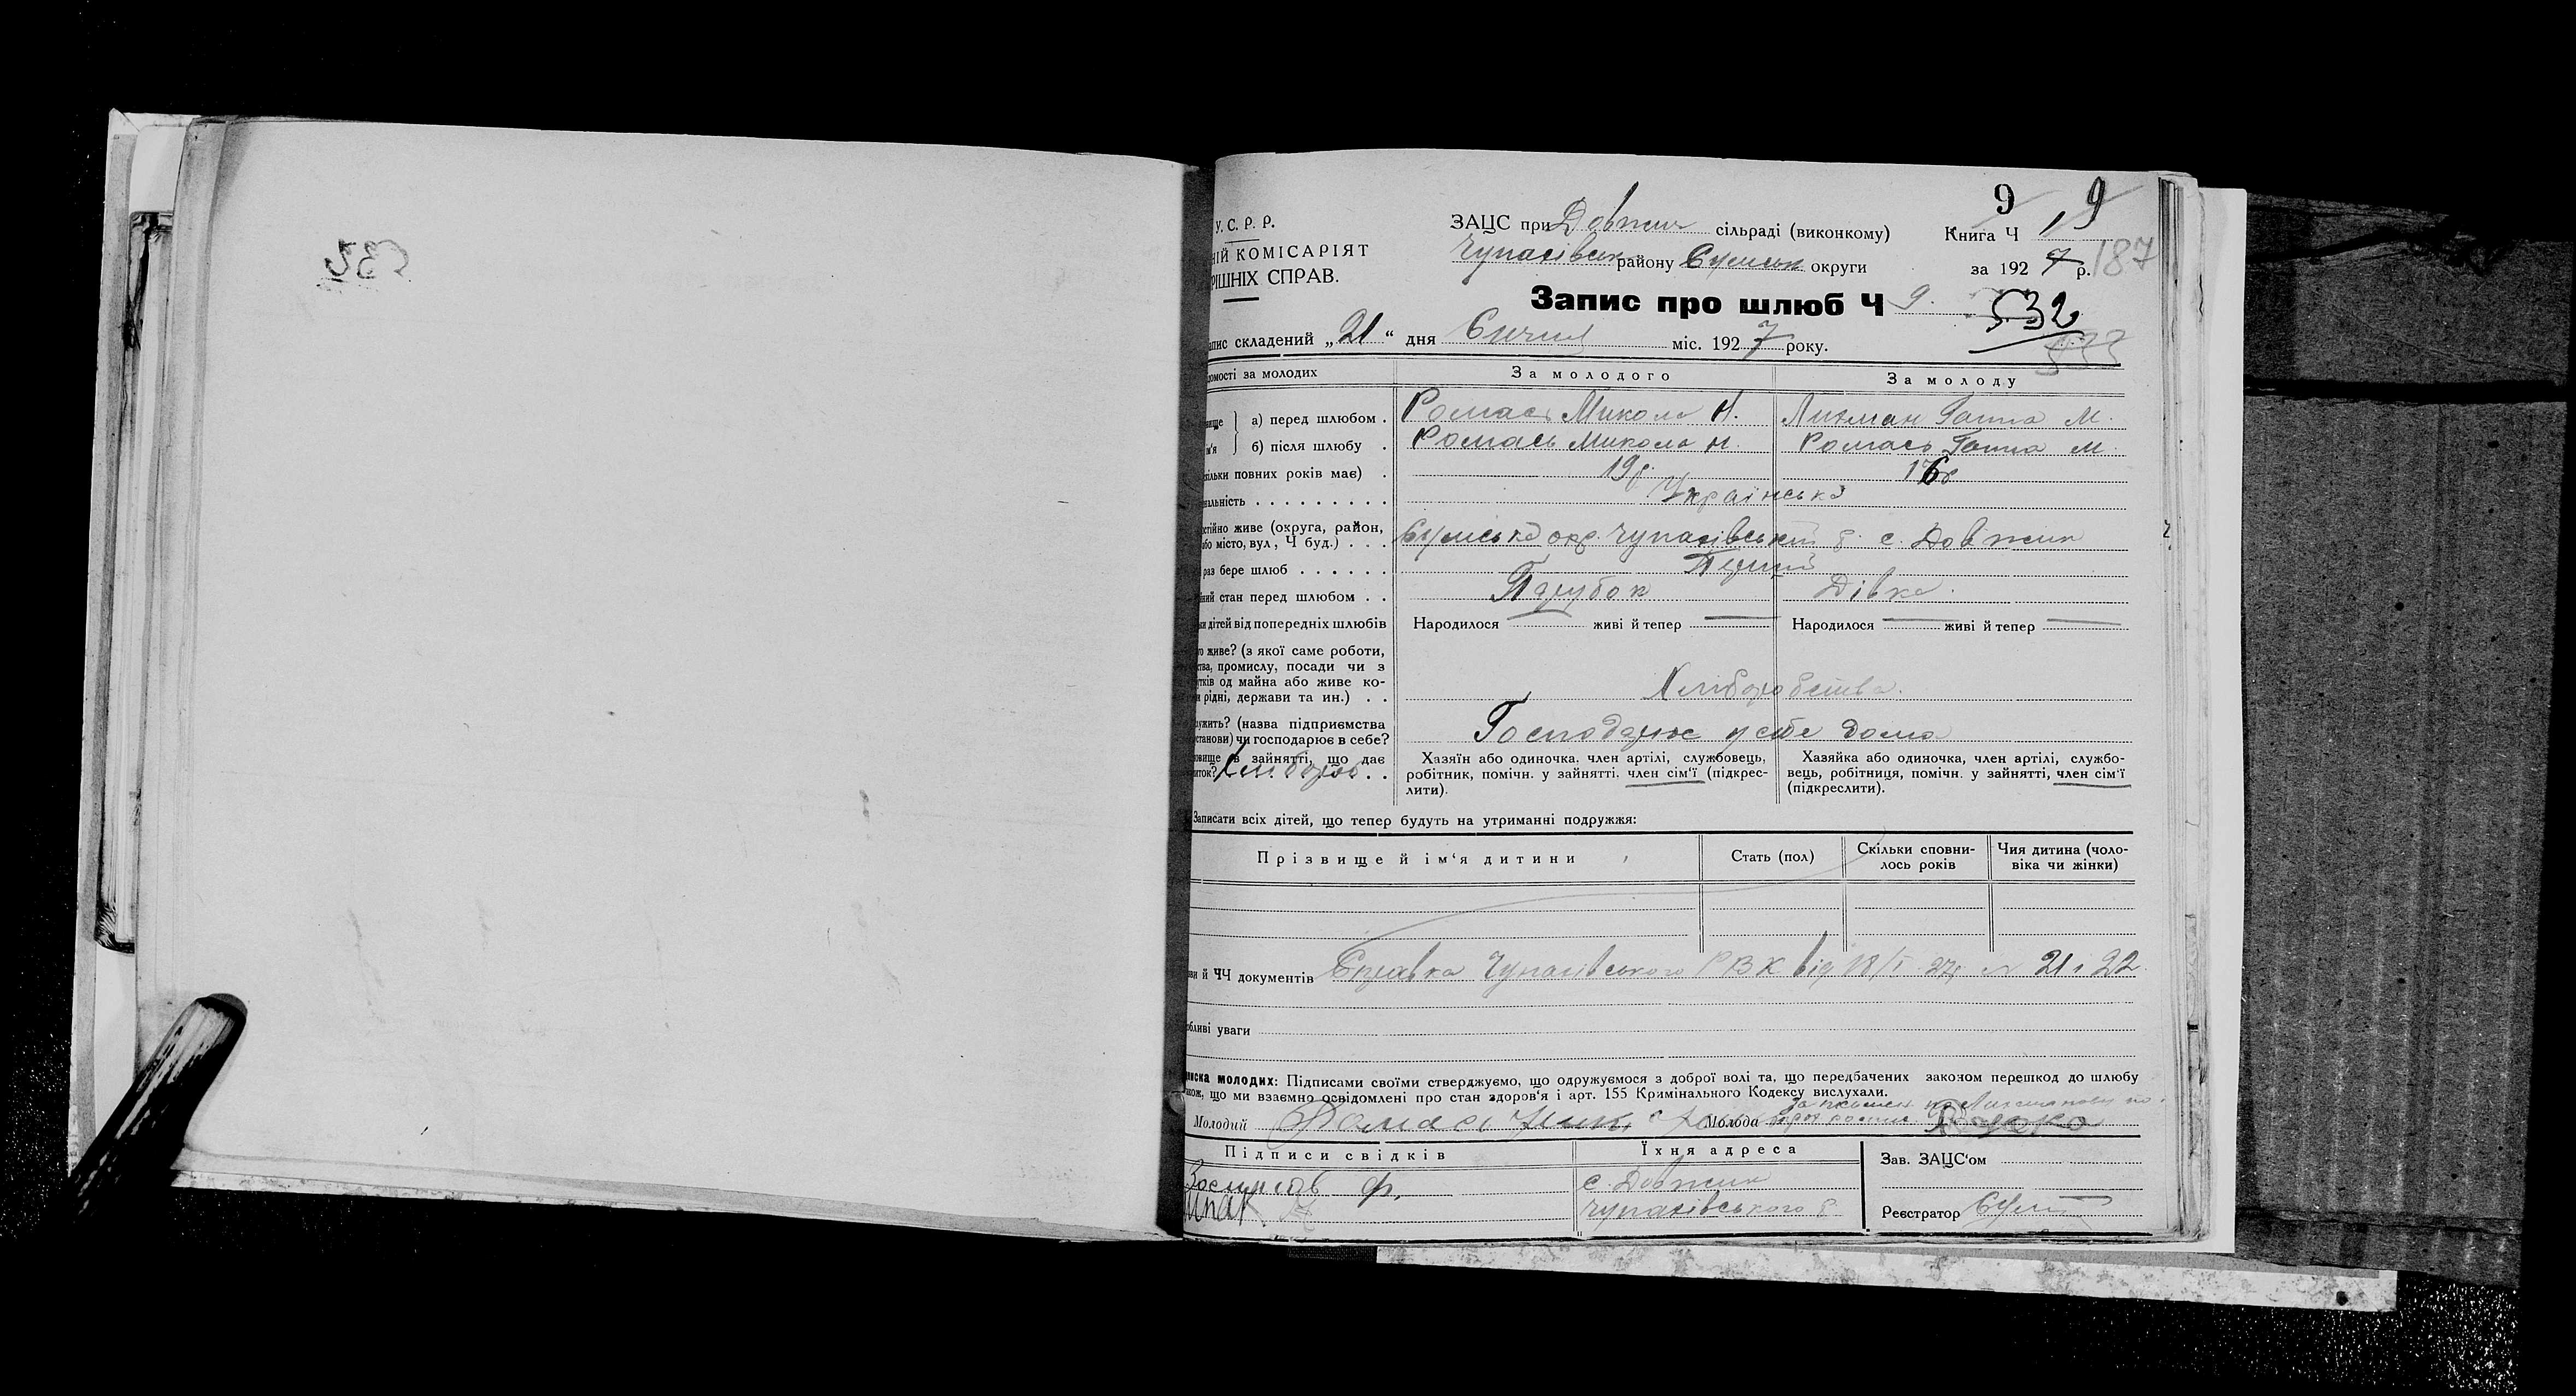 9 9
У. С. Р. Р.
ЗАЦС при Довжик сільраді (виконкому) Книга Ч 1
ІЙ КОМІСАРІЯТ
Чупахівськ району Сумськ округи за 1927 р. 187
РІШНІХ СПРАВ.
Запис про шлюб Ч 9. 532
533
апис складений „21“ дня Січня міс. 1927 року.
домості за молодих За молодого За молоду
вище а) перед шлюбом . Ромась Микола Н. Лихман Ганна М.
ім'я б) після шлюбу . Ромась Микола Н. Ромась Ганна М.
кільки повних років має) . 19 р. 16
нальність . . . . . . . . . Українська
остійно живе (округа, район,
або місто, вул, Ч буд.) . . . Сумська окр. Чупахівський р. с. Довжик
раз бере шлюб . . . . . . Перший
ний стан перед шлюбом . . Парубок Дівка.
ки дітей від попередніх шлюбів Народилося — живі й тепер — Народилося — живі й тепер —
го живе? (з якої саме роботи,
ства, промислу, посади чи з
тків од майна або живе ко-
и рідні, держави та ин.) . . Хліборобства.
ужить? (назва підприємства
станови) чи господарює в себе? Господарює у себе дома
овище в зайнятті, що дає
иток? Хлібороб . .
Хазяїн або одиночка, член артілі, службовець,
робітник, помічн. у зайнятті, член сім'ї (підкрес-
лити).
Хазяйка або одиночка, член артілі, службо-
вець, робітниця, помічн. у зайнятті, член сім'ї
(підкреслити).
Записати всіх дітей, що тепер будуть на утриманні подружжя:
Прізвище й ім'я дитини Стать (пол) Скільки сповни-
лось років Чия дитина (чоло-
віка чи жінки)
ви й ЧЧ документів Справка Чупахівського РВК від 18/I 27р № 21 і 22
обливі уваги
писка молодих: Підписами своїми стверджуємо, що одружуємося з доброї волі та, що передбачених законом перешкод до шлюбу
акож, що ми взаємно освідомлені про стан здоров'я і арт. 155 Кримінального Кодексу вислухали.
Молодий Ромась Молода
Підписи свідків Їхня адреса Зав. ЗАЦС'ом
ф. с. Довжик
Шпак Чупахівського р. Реєстратор